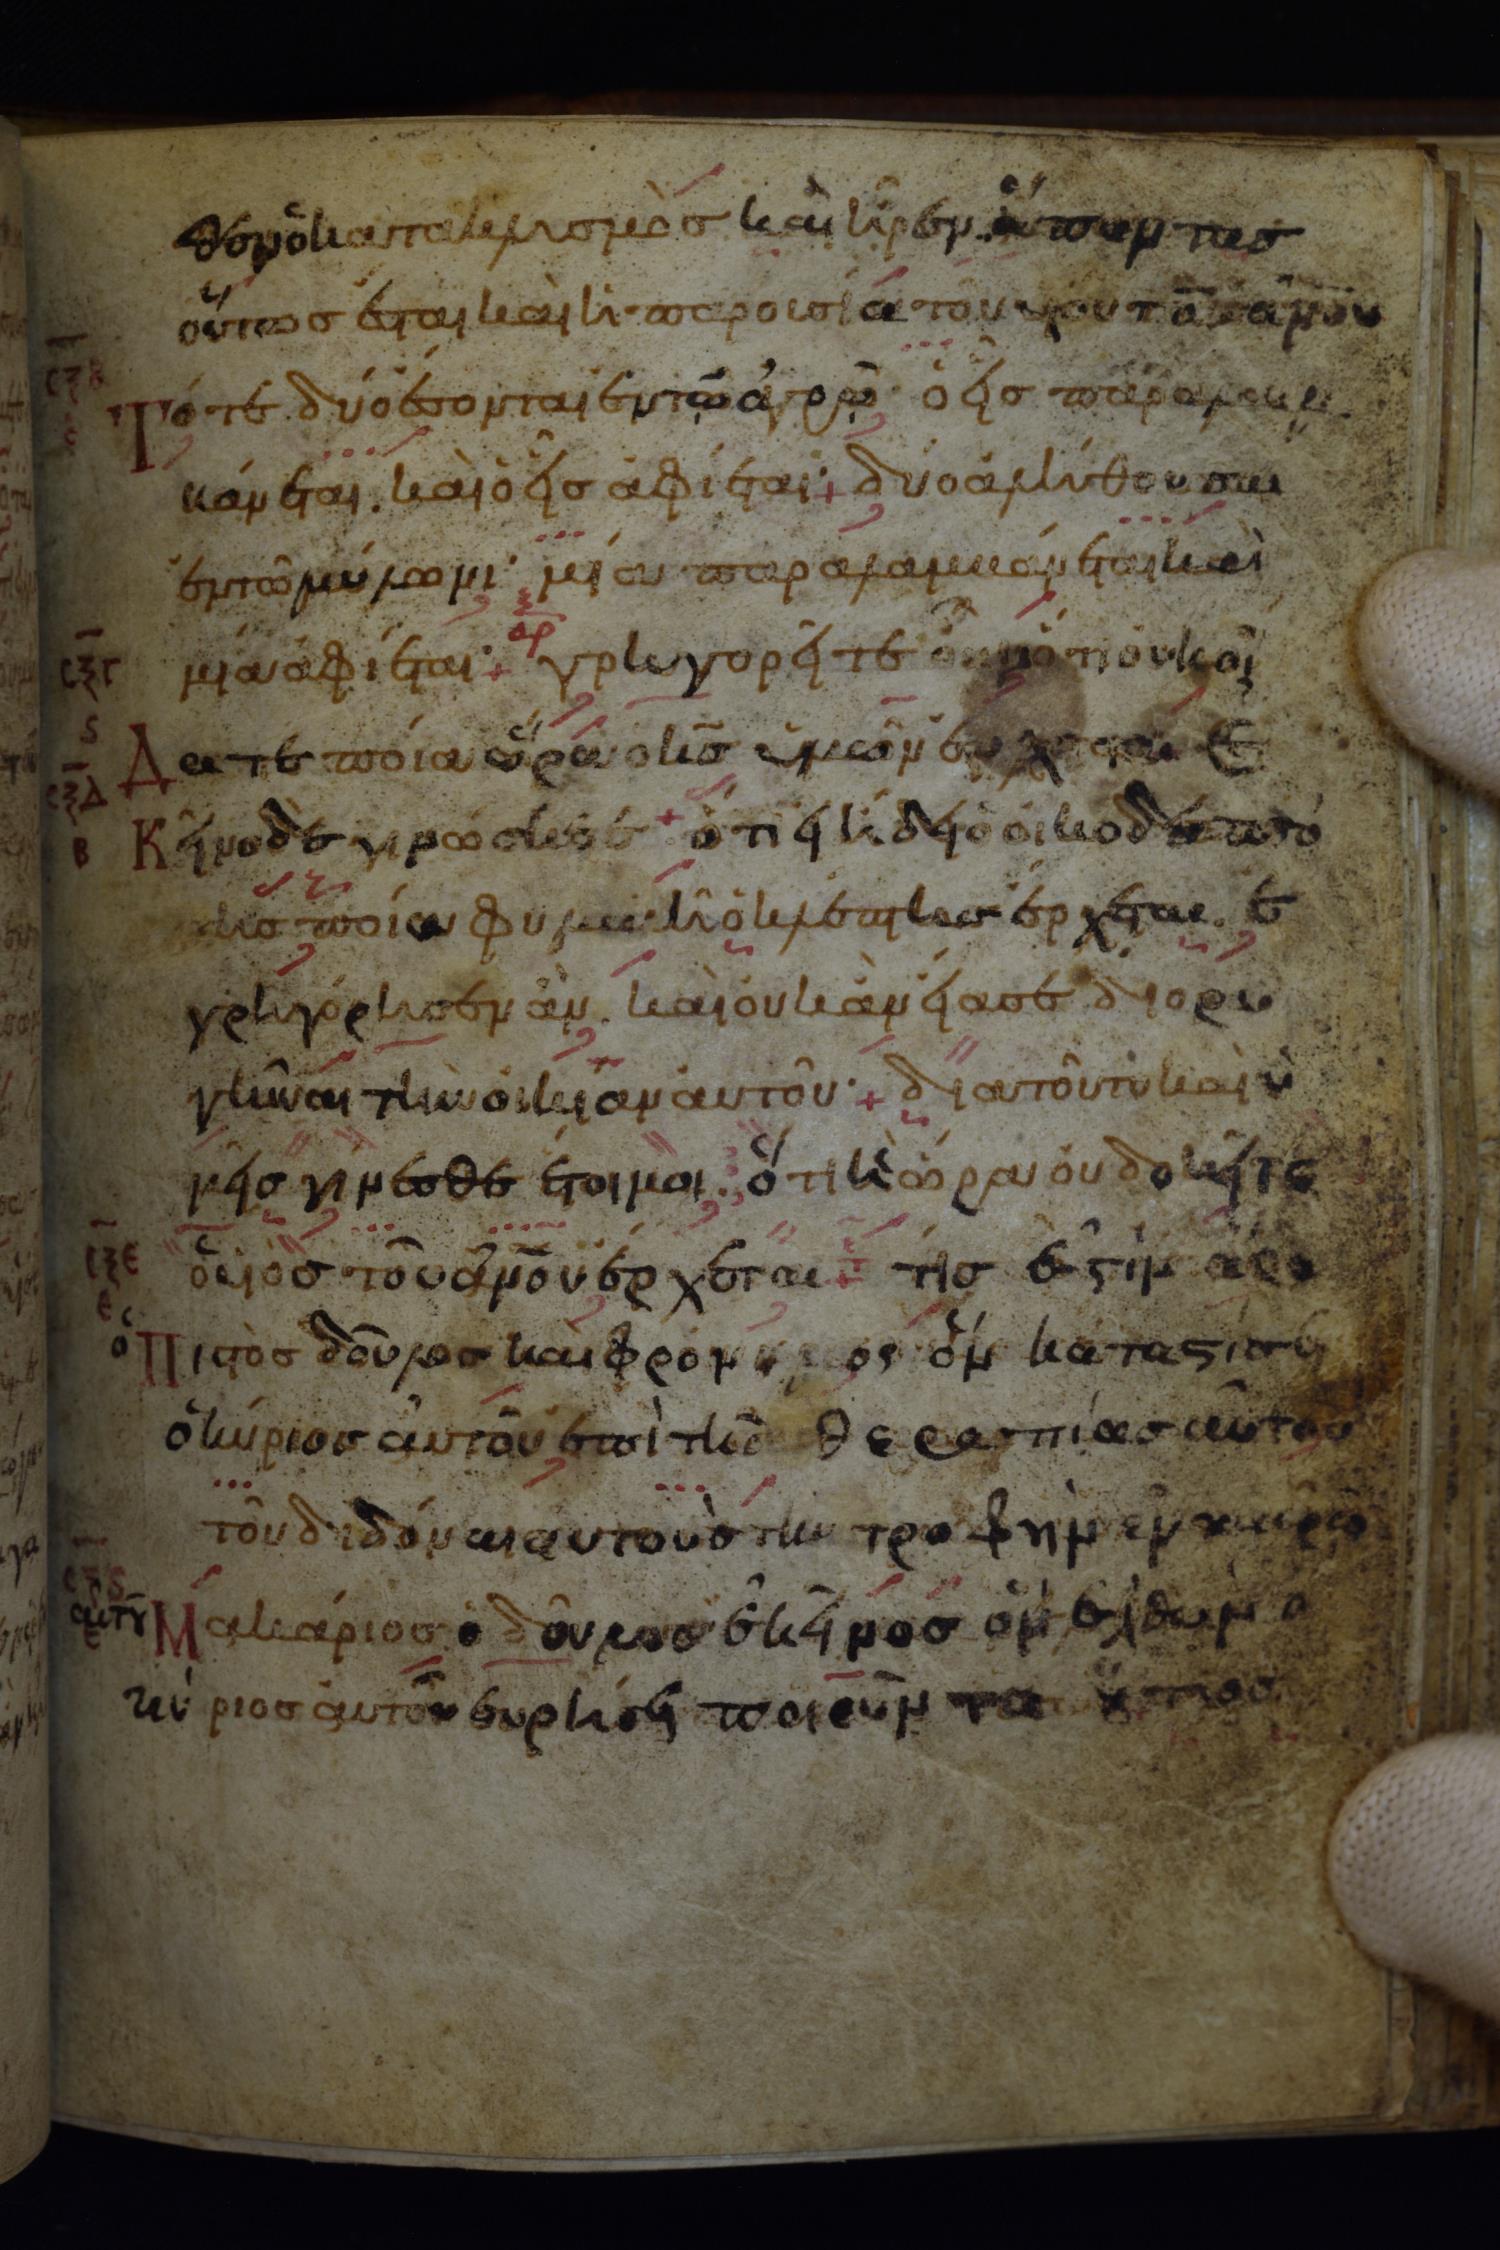 θεν ὁ κατακλισμὸς καὶ ἦρεν ἅπαντας
οὕτως ἔσται καὶ ἡ παρουσία τοῦ υἱοῦ τοῦ ἀνου
σξβ
ε
Τότε δύο ἔσονται ἐν τῶ ἀγρῶ· ὁ εἷς παραλαμ
κάνεται. καὶ ὁ εἷς ἀφίεται· + δύο ἀλήθουσαι
ἐν τῶ μύλωνι· μία παραλαμκάνεται καὶ
μία ἀφίεται· + γρηγορεῖτε οὖν ὅτι οὐκ οἴ
αρ
σξγ
ς
Δατε ποία ὥρα ὁ κς ὑμῶν ἔρχεται
σξδ
β
Κεῖνο δὲ γινώσκετε + ὅτι εἰ ἤδει ὁ οἰκοδεσπό
της ποία φυλακῆ ὁ κλέπτης ἔρχεται. ἐ
γρηγόρησεν ἂν. καὶ οὐκ ἂν εἴασε διορυ
γῆναι τὴν οἰκίαν αὐτοῦ· + διατοῦτο καὶ ὑ
μεῖς γίνεσθε ἕτοιμοι. ὅτι ἧ ὥρα οὐ δοκεῖτε
ὁ υἱὸς τοῦ ἀνου ἔρχεται + τίς ἐστὶν ἄρα
σξε
ε
ὁ Πιστὸς δοῦλος καὶ φρόνιμος ὃν κατασίσει
ὁ κύριος αὐτοῦ ἐπὶ τῆς θεραπίας αὐτοῦ
τοῦ διδόναι αὐτοὺς τὴν τροφὴν ἐν καιρῶ
σξς
ε
αυτου Μακάριος ὁ δοῦλος ἐκεῖνος ὃν ἐλθὼν ὁ
κύριος αὐτοῦ εὑρήσει ποιοῦντα οὕτως